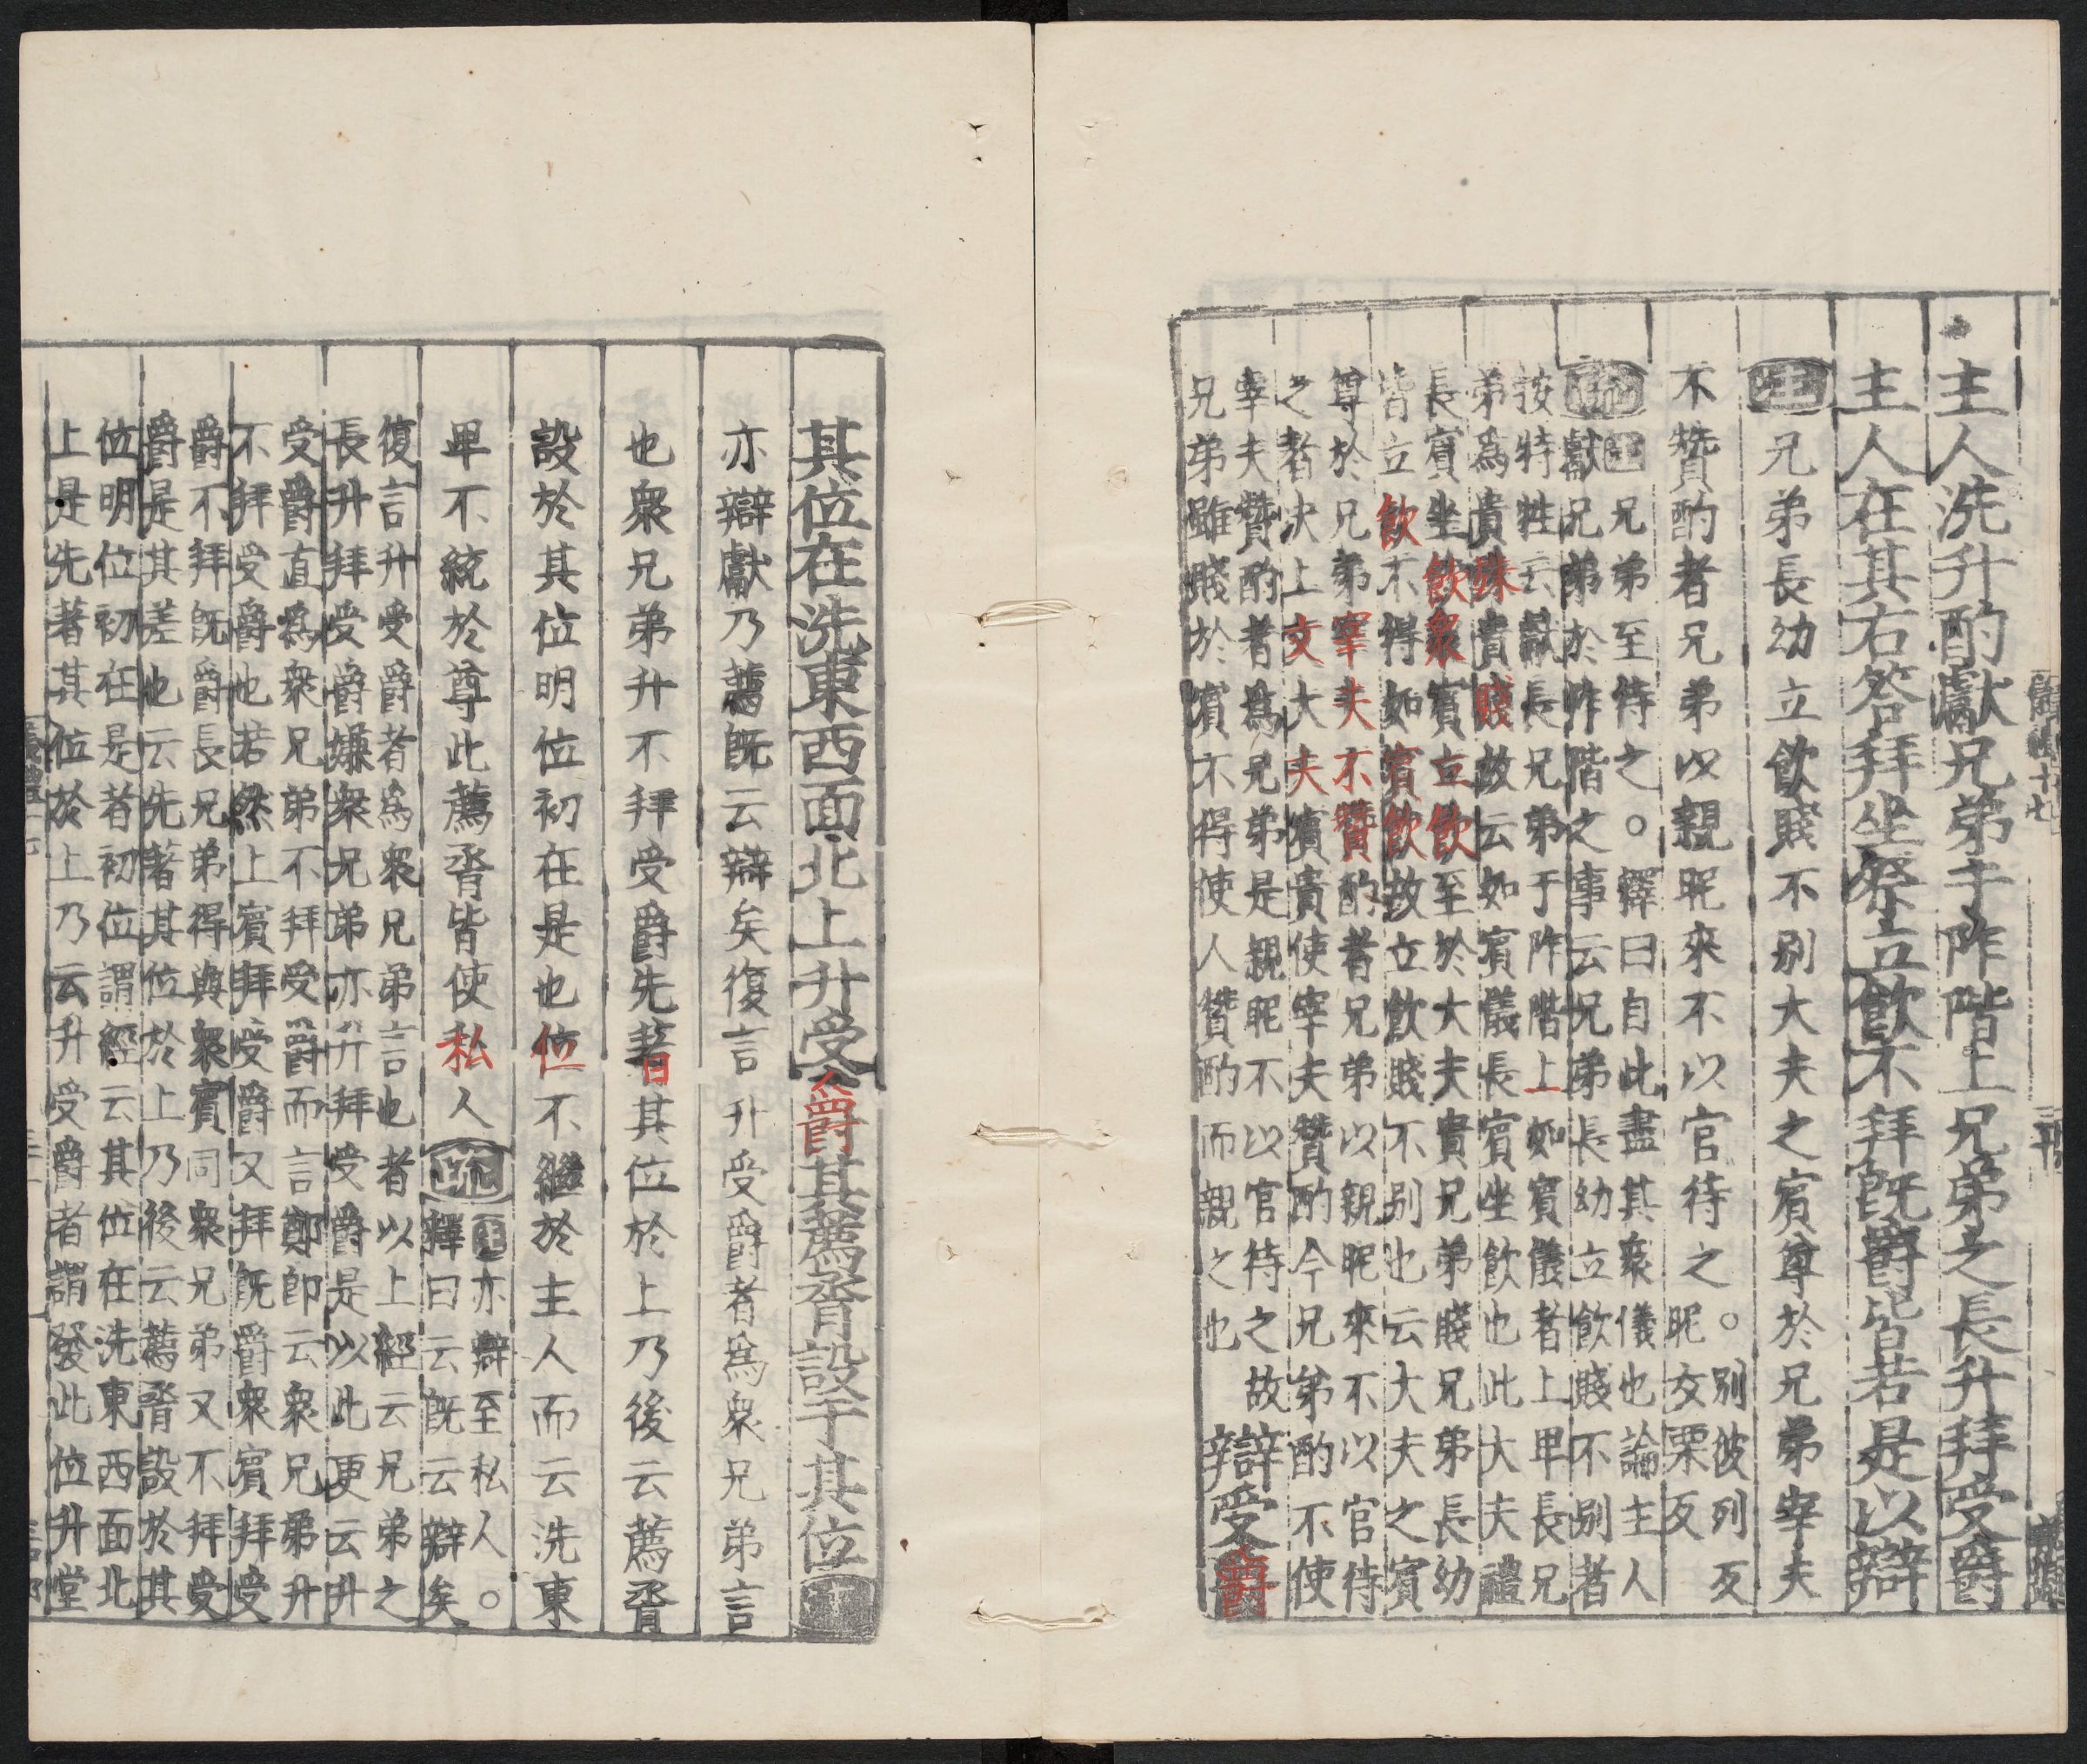 主人洗升酌獻兄弟于阼階上兄弟之長升拜受爵
主人在其右答拜坐祭立飲不拜旣爵皆若是以辯
注兄弟長幼立飲賤不別大夫之賓尊於兄弟宰夫
不贊酌者兄弟以親昵來不以官待之○別彼列反昵女栗反
疏主人兄弟至待之○釋曰自此盡其衆儀也論主人
獻兄弟於阼階之事云兄弟長幼立飲賤不別者
按特牲云獻長兄弟于阼階上如賓儀者上卑長兄
弟爲貴殊貴賤故云如賓儀長賓坐飲也此大夫禮
長賓坐飲衆賓立飲至於大夫貴兄弟賤兄弟長幼
皆立飲不得如賓飲故立飲賤不別也云大夫之賓
尊於兄弟宰夫不贊酌者兄弟以親昵來不以官待
之者決上文大夫賓貴使宰夫贊酌今兄弟酌不使
宰夫贊酌者爲兄弟是親昵不以官待之故
兄弟雖賤於賓不得使人贊酌而親之也
辯受爵
其位在洗東西面北上升受爵其薦脀設于其位注
亦辯獻乃薦旣云辯矣復言升受爵者爲衆兄弟言
也衆兄弟升不拜受爵先著其位於上乃後云薦脀
設於其位明位初在是也位不繼於主人而云洗東
卑不統於尊此薦脀皆使私人疏亦辯至私人○
釋曰云旣云辯矣
復言升受爵者爲衆兄弟言也者以上經云兄弟之
長升拜受爵嫌衆兄弟亦升拜受爵是以此更云升
受爵直爲衆兄弟不拜受爵而言鄭卽云衆兄弟升
不拜受爵也若然上賓拜受爵又拜旣爵衆賓拜受
爵不拜旣爵長兄弟得與衆賓同衆兄弟又不拜受
爵是其差也云先著其位於上乃後云薦脀設於其
位明位初在是者初位謂經云其位在洗東西面北
上是先著其位於上乃云升受爵者謂發此位升堂